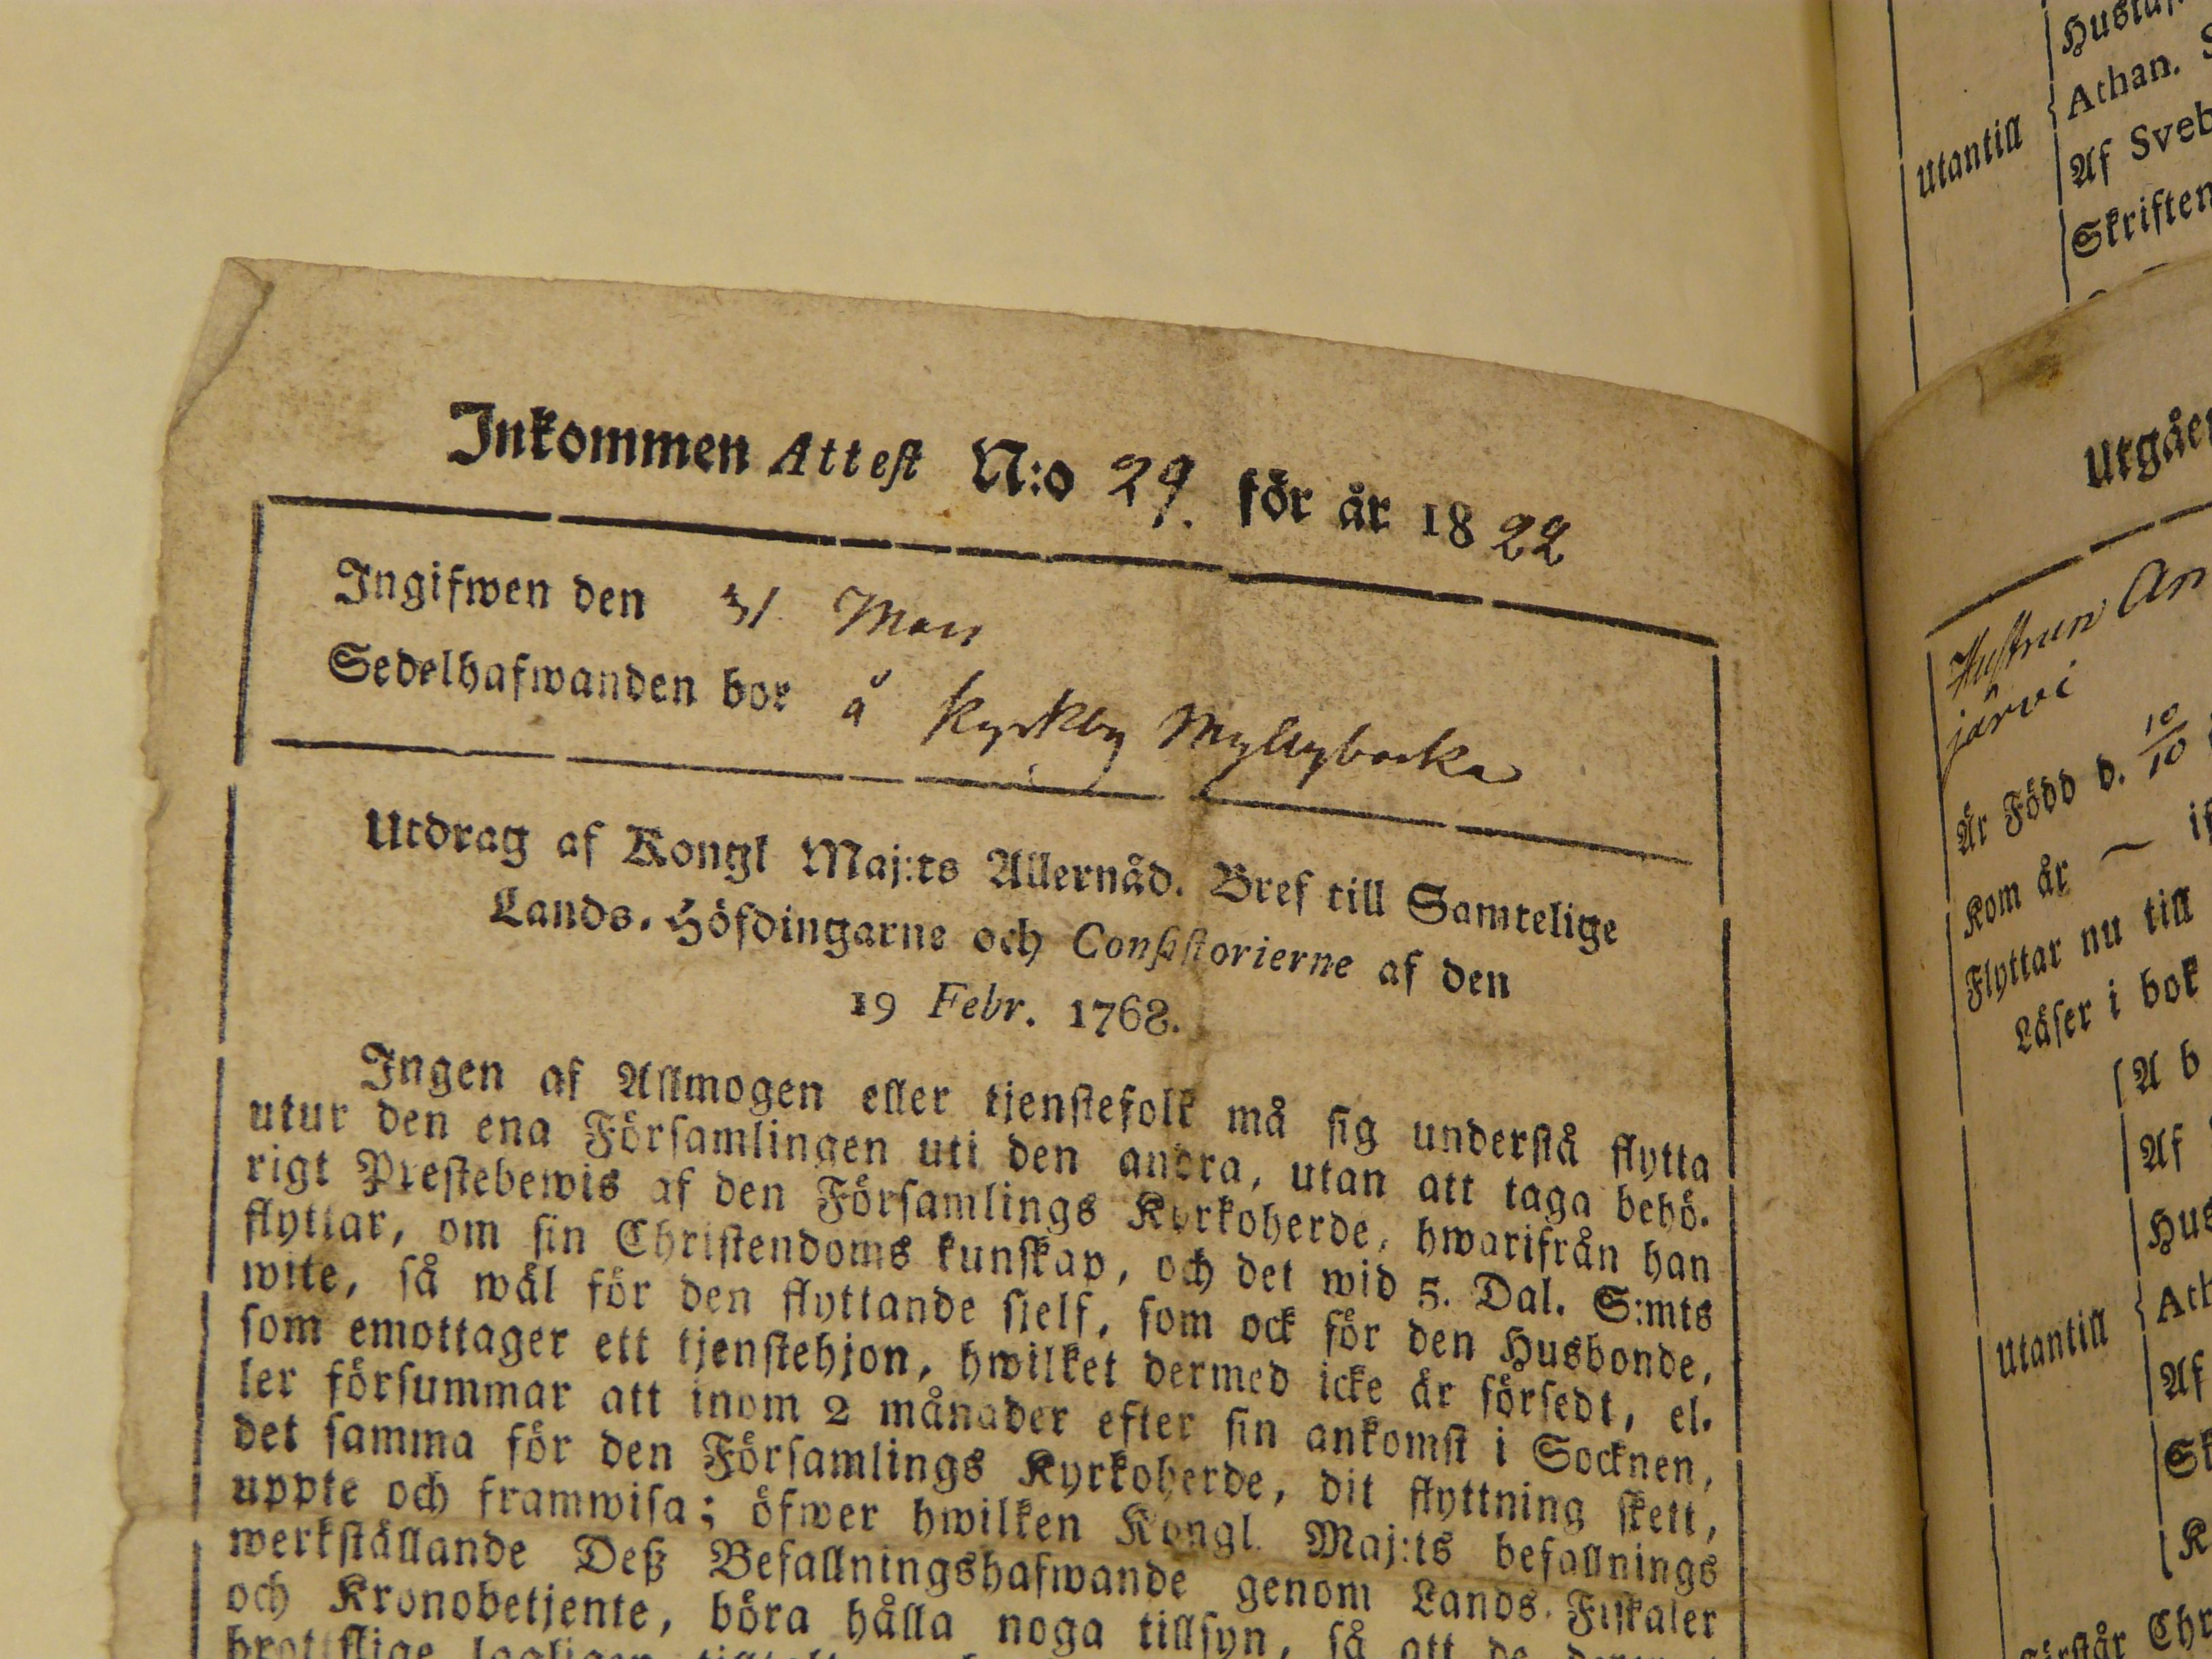 Inkommen Attest N:o 29. för år 1822
Ingifwen den 31. Mars
Sedelhafwanden bor å Kyrkby Myllybacka
Utdrag af Kongl Maj:ts Allernåd. Bref till Samtelige
Lands-Höfdingarne och Consistorierne af den
19 Febr. 1768.
Ingen af Allmogen eller tjenstefolk må sig understå flytta
utur den ena Församlingen uti den andra, utan att taga behö-
rigt Prestebewis af den Församlings Kyrkoherde, hwarifrån han
flyttar, om sin Christendoms kunskap, och det wid 5. Dal. S:mts
wite, så wäl för den flyttande sielf, som ock för den Husbonde,
som emottager ett tjenstehjon, hwilket dermed icke är försedt, el-
ler försummar att inom 2 månader efter sin ankomst i Socknen,
det samma för den Församlings Kyrkoherde, dit flyttning skett,
uppte och framwisa; öfwer hwilken Kongl. Maj:ts befallnings
werkställande Deß Befallningshafwande genom Lands-Fiskaler
och Kronobetjente, böra hålla noga tillsyn, så att de
Utantill
Athan.
Af Sveb
Skriften
Utgåen
Hustrun An
järvi
Är Född d. 10/10
Kom år —
Flyttar nu till
Läser i bok
A b
Af
Hus
Utantill
Ath
Af
Sk
K
Chr